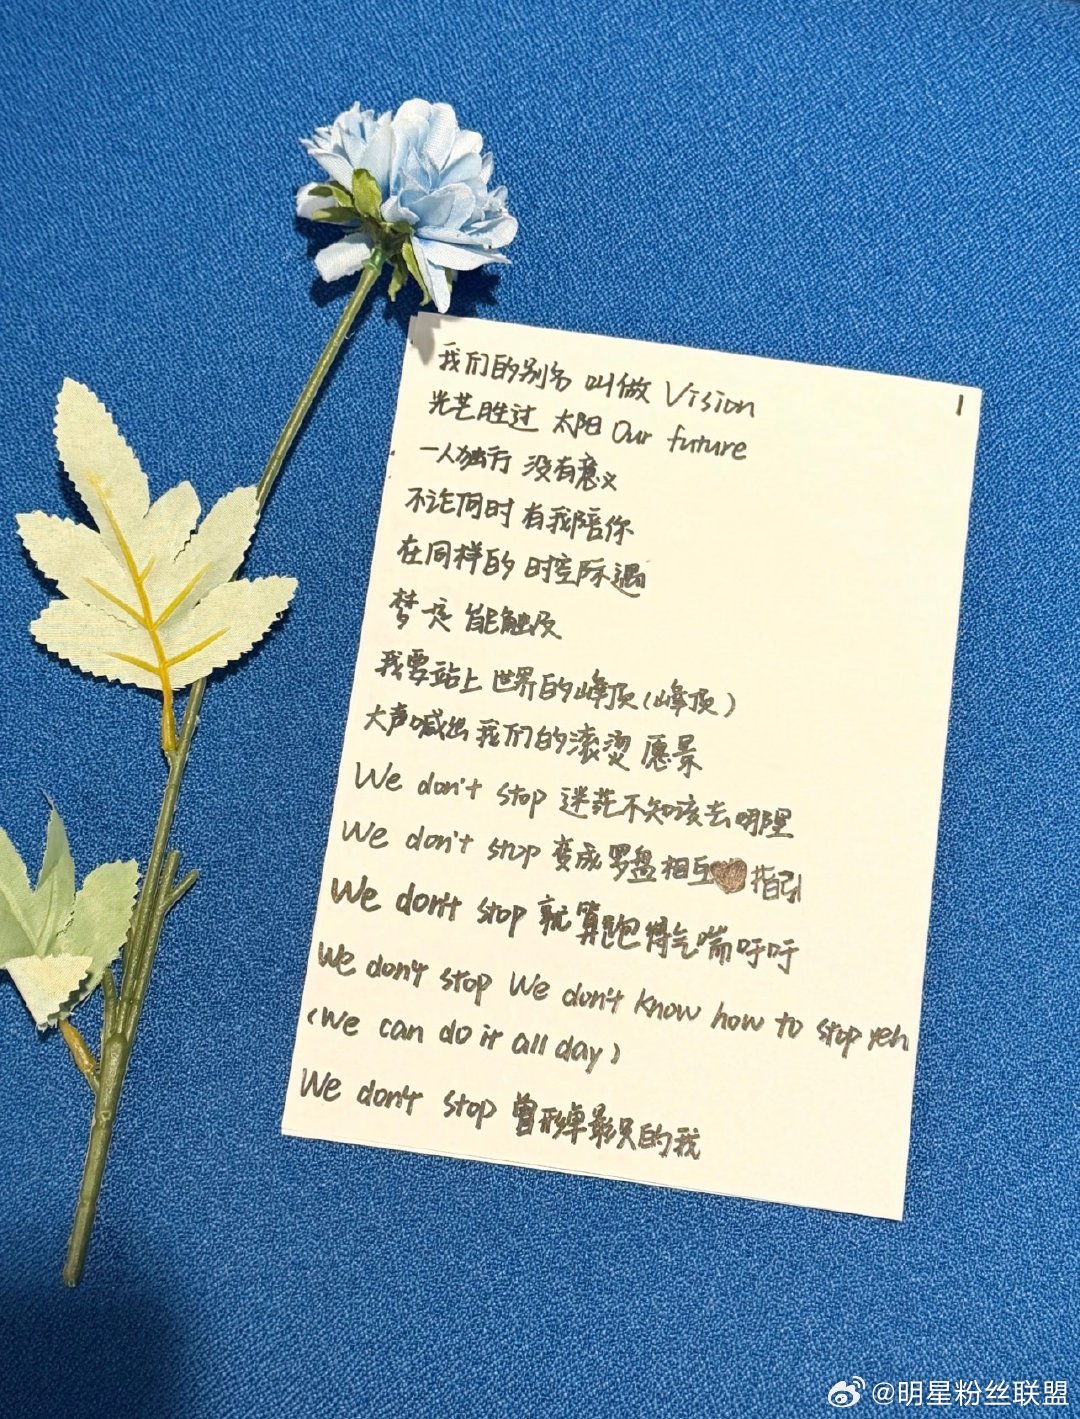 1
我们的别名 叫做 Vision
光芒胜过 太阳 Our future
一人独行 没有意义
不论何时 有我陪你
在同样的 时空际遇
梦一定 能触及
我要站上 世界的峰顶(峰顶)
大声喊出 我们的滚烫 愿景
We don't stop 迷茫不知该去哪里
We don't stop 变成罗盘相互指引
We don't stop 就算跑得气喘吁吁
We don't stop We don't know how to stop yeh
(We can do it all day)
We don't stop 曾形单影只的我
@明星粉丝联盟